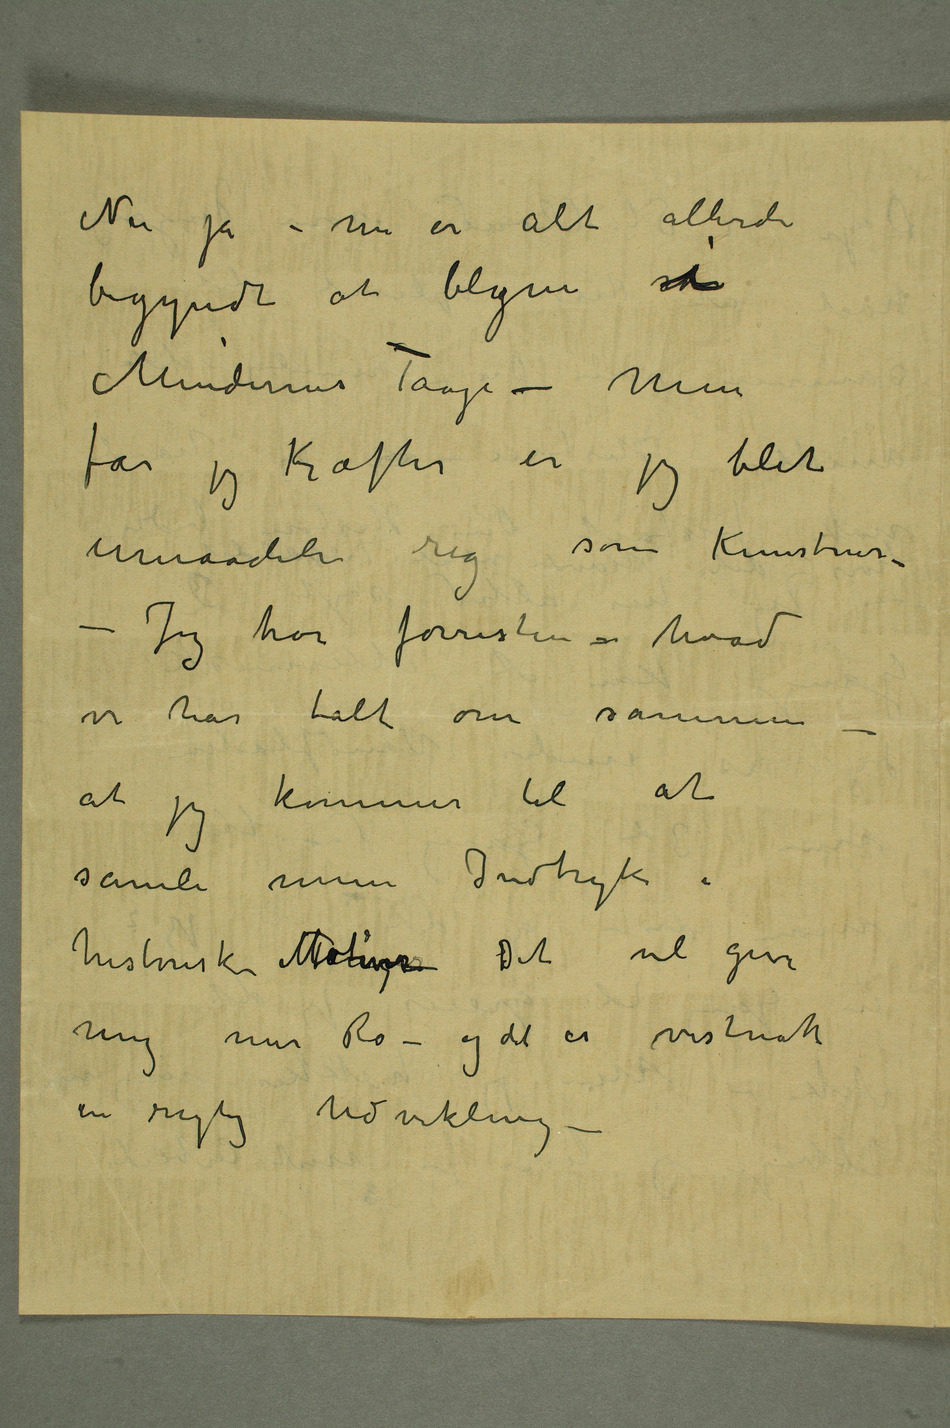 Nu ja – nu er alt allerede
begyndt at blegne i
Mindernes Taage – Men
får jeg Kræfter er jeg blet
umaadelig rig som Kunstner –
– Jeg har forresten – hvad
vi har talt om sammen –
at jeg kommer til at
samle mine Indtryk i
historiske Motiver Det vil give
mig mer Ro – og det er vistnok
en rigtig Udvikling –